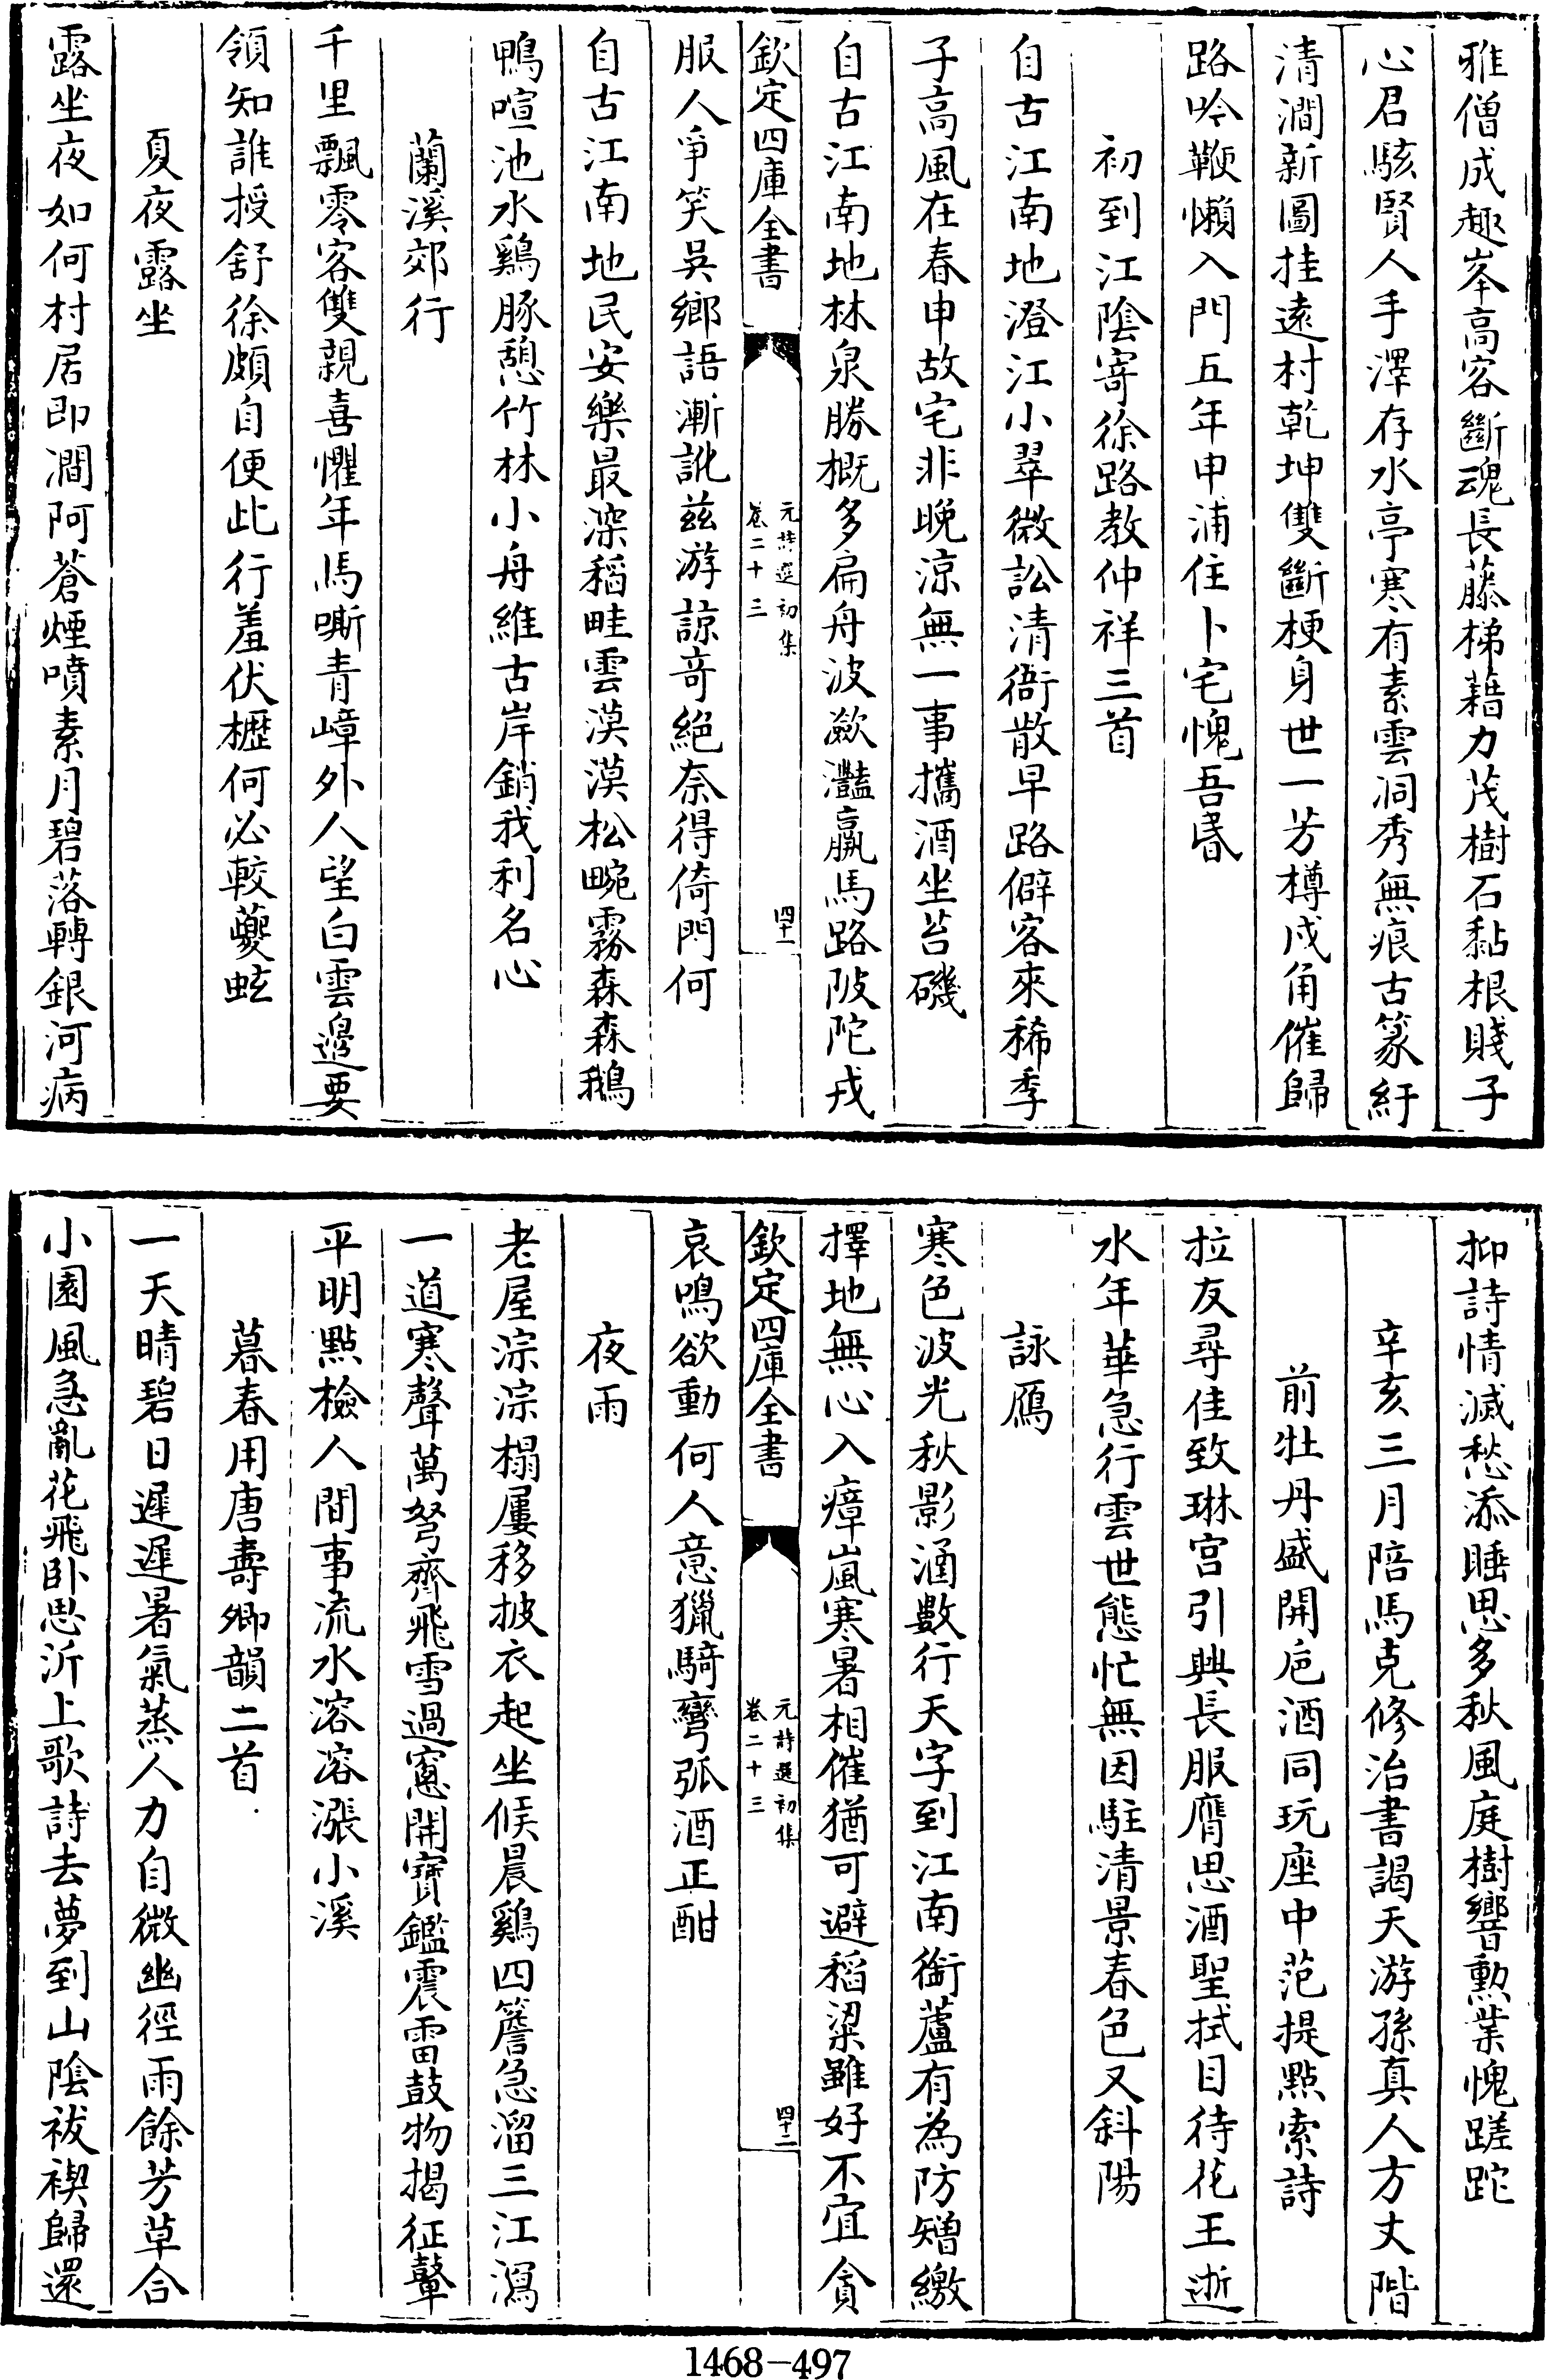 雅僧成趣峯高客斷魂長藤梯藉力茂樹石黏根賤子
心君駭賢人手澤存水亭寒有素雲洞秀無痕古篆紆
清澗新圖挂遠村乾坤雙斷梗身世一芳樽戍角催歸
路吟鞭懶入門五年申浦住卜宅愧吾昬
初到江陰寄徐路教仲祥三首
自古江南地澄江小翠微訟清衙散早路僻客來稀季
子高風在春申故宅非晚涼無一事攜酒坐苔磯
自古江南地林泉勝概多扁舟波瀲灩羸馬路陂陀戎
欽定四庫全書
元詩選初集
卷二十三
四十一
服人爭笑吳鄉語漸訛兹游諒奇絕奈得倚門何
自古江南地民安樂最深稻畦雲漠漠松畹霧森森鵝
鴨喧池水鷄豚憩竹林小舟維古岸銷我利名心
蘭溪郊行
千里飄零客雙親喜懼年馬嘶青嶂外人望白雲邊要
領知誰授舒徐頗自便此行羞伏櫪何必較夔蚿
夏夜露坐
露坐夜如何村居即澗阿蒼煙噴素月碧落轉銀河病
抑詩情滅愁添睡思多秋風庭樹響勲業愧蹉跎
辛亥三月陪馬克修治書謁天游孫真人方丈階
前牡丹盛開巵酒同玩座中范提點索詩
拉友尋佳致琳宫引興長服膺思酒聖拭目待花王逝
水年華急行雲世態忙無因駐清景春色又斜陽
詠鴈
寒色波光秋影涵數行天字到江南銜蘆有為防矰繳
擇地無心入瘴嵐寒暑相催猶可避稻粱雖好不宜貪
欽定四庫全書
元詩選初集
卷二十三
四十二
哀鳴欲動何人意獵騎彎弧酒正酣
夜雨
老屋淙淙榻屢移披衣起坐候晨鷄四簷急溜三江瀉
一道寒聲萬弩齊飛雪過窻開寶鑑震雷鼓物揭征鼙
平明點檢人間事流水溶溶漲小溪
暮春用唐壽卿韻二首
一天晴碧日遲遲暑氣蒸人力自微幽徑雨餘芳草合
小園風急亂花飛卧思沂上歌詩去夢到山陰祓禊歸還
1468-497